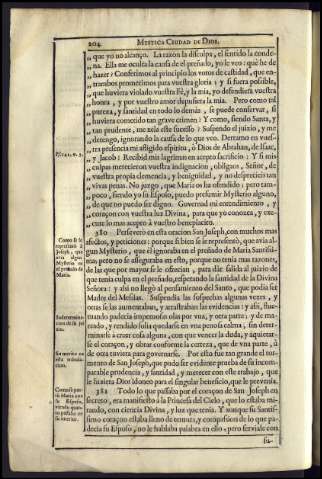 204 MYSTICA CIUDAD DE DIOS.
„ que yo no alcanço. La razon la disculpa, el sentido la conde-
„ na. Ella me oculta la causa de el preñado, yo le veo: què he de
„ hazer? Conferimos al principio los votos de castidad, que en-
„ trambos prometimos para vuestra gloria; y si fuera possible,
„ que huviera violado vuestra Fè, y la mia, yo defendiera vuestra
„ honra, y por vuestro amor depusiera la mia. Pero como tal
„ pureza, y santidad en todo lo demàs, se puede conservar, si
„ huviera cometido tan grave crimen? Y como, siendo Santa, y
„ tan prudente, me zela este sucesso? Suspendo el juizio, y me
„ detengo, ignorando la causa de lo que veo. Derramo en vues-
„ tra presencia mi afligido espiritu, ò Dios de Abrahan, de Isaac,
„ y Jacob: Recibid mis lagrimas en acepto sacrificio: Y si mis
„ culpas merecieron vuestra indignacion, obligaos, Señor, de
„ vuestra propia clemencia, y benignidad, y no desprecieis tan
„ vivas penas. No juzgo, que Maria os ha ofendido; pero tam-
„ poco, siendo yo su Esposo, puedo presumir Mysterio alguno,
„ de que no puedo ser digno. Governad mi entendimiento, y
„ coraçon con vuestra luz Divina, para que yo conozca, y exe-
„ cute lo mas acepto à vuestro beneplacito.
380 Perseverò en esta oracion San Joseph, con muchos mas
afectos, y peticiones; porque si bien se le representò, que avia al-
gun Mysterio, que èl ignorava en el preñado de Maria Santissi-
ma; pero no se assegurava en esto, porque no tenia mas razones,
de las que por mayor se le ofrecian, para dàr salida al juizio de
que tenia culpa en el preñado, respetando la santidad de la Divina
Señora: y assi no llegò al pensamiento del Santo, que podia ser
Madre del Messias. Suspendia las sospechas algunas vezes, y
otras se las aumentavan, y arrastravan las evidencias: y assi, fluc-
tuando padecia impetuosas olas por vna, y otra parte: y de ma-
reado, y rendido solia quedarse en vna penosa calma, sin deter-
minarse à creer cosa alguna, con que vencer la duda, y aquietar-
se el coraçon, y obrar conforme la certeza, que de vna parte, ù
de otra tuviera para governarse. Por esto fue tan grande el tor-
mento de San Joseph, que pudo ser evidente prueba de su incom-
parable prudencia, y santidad, y merecer con este trabajo, que
le hiziera Dios idoneo para el singular beneficio, que le prevenia.
381 Todo lo que passava por el coraçon de San Joseph en
secreto, era manifiesto à la Princesa del Cielo, que lo estava mi-
rando, con ciencia Divina, y luz que tenia. Y aunque su Santis-
simo coraçon estava lleno de ternura, y compassion de lo que pa-
decia su Esposo, no le hablava palabra en ello; pero serviale con
su-